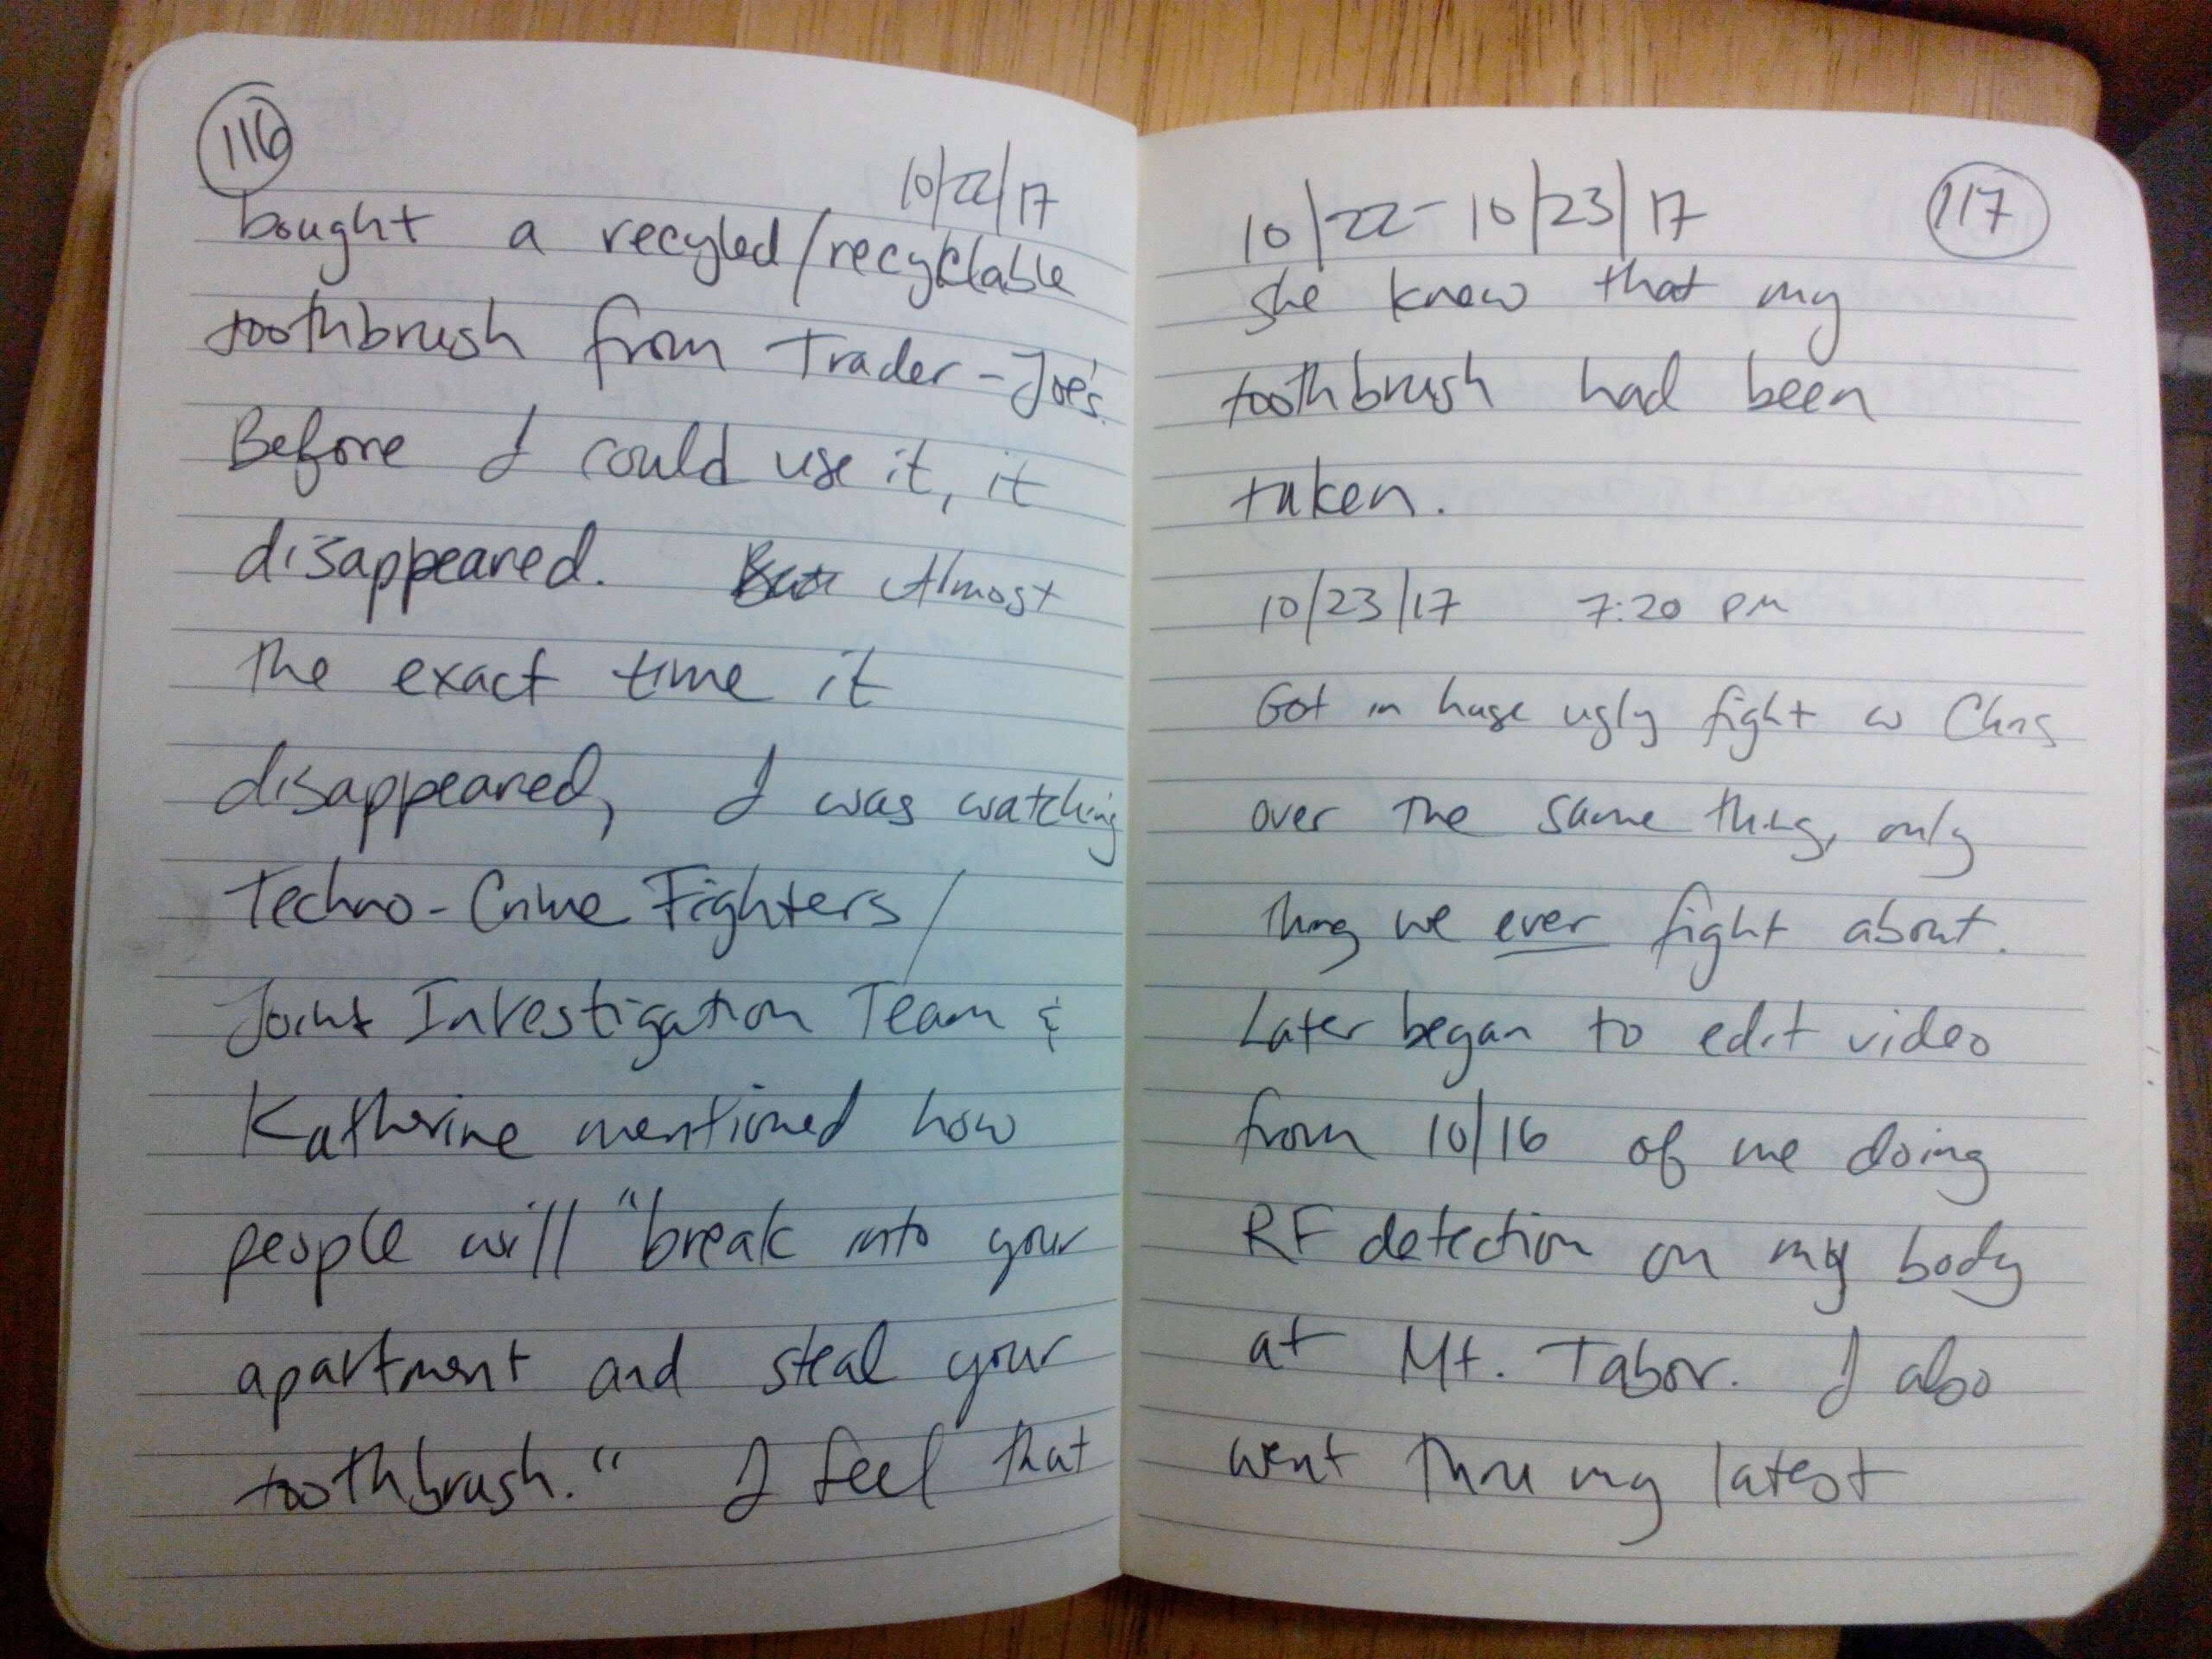 116
10/22/17
bought a recyled/recyclable
toothbrush from Trader-Joe's.
Before I could use it, it
disappeared. Almost
the exact time it
disappeared, I was watching
Techno-Crime Fighters/
Joint Investigation Team &
Katherine mentioned how
people will "break into your
apartment and steal your
toothbrush." I feel that
10/22-10/23/17
117
she knew that my
toothbrush had been
taken.
10/23/17 7:20 PM
Got in huge ugly fight w Chris
over the same thing, only
thing we ever fight about.
Later began to edit video
from 10/16 of me doing
RF detection on my body
at Mt. Tabor. I also
went thru my latest